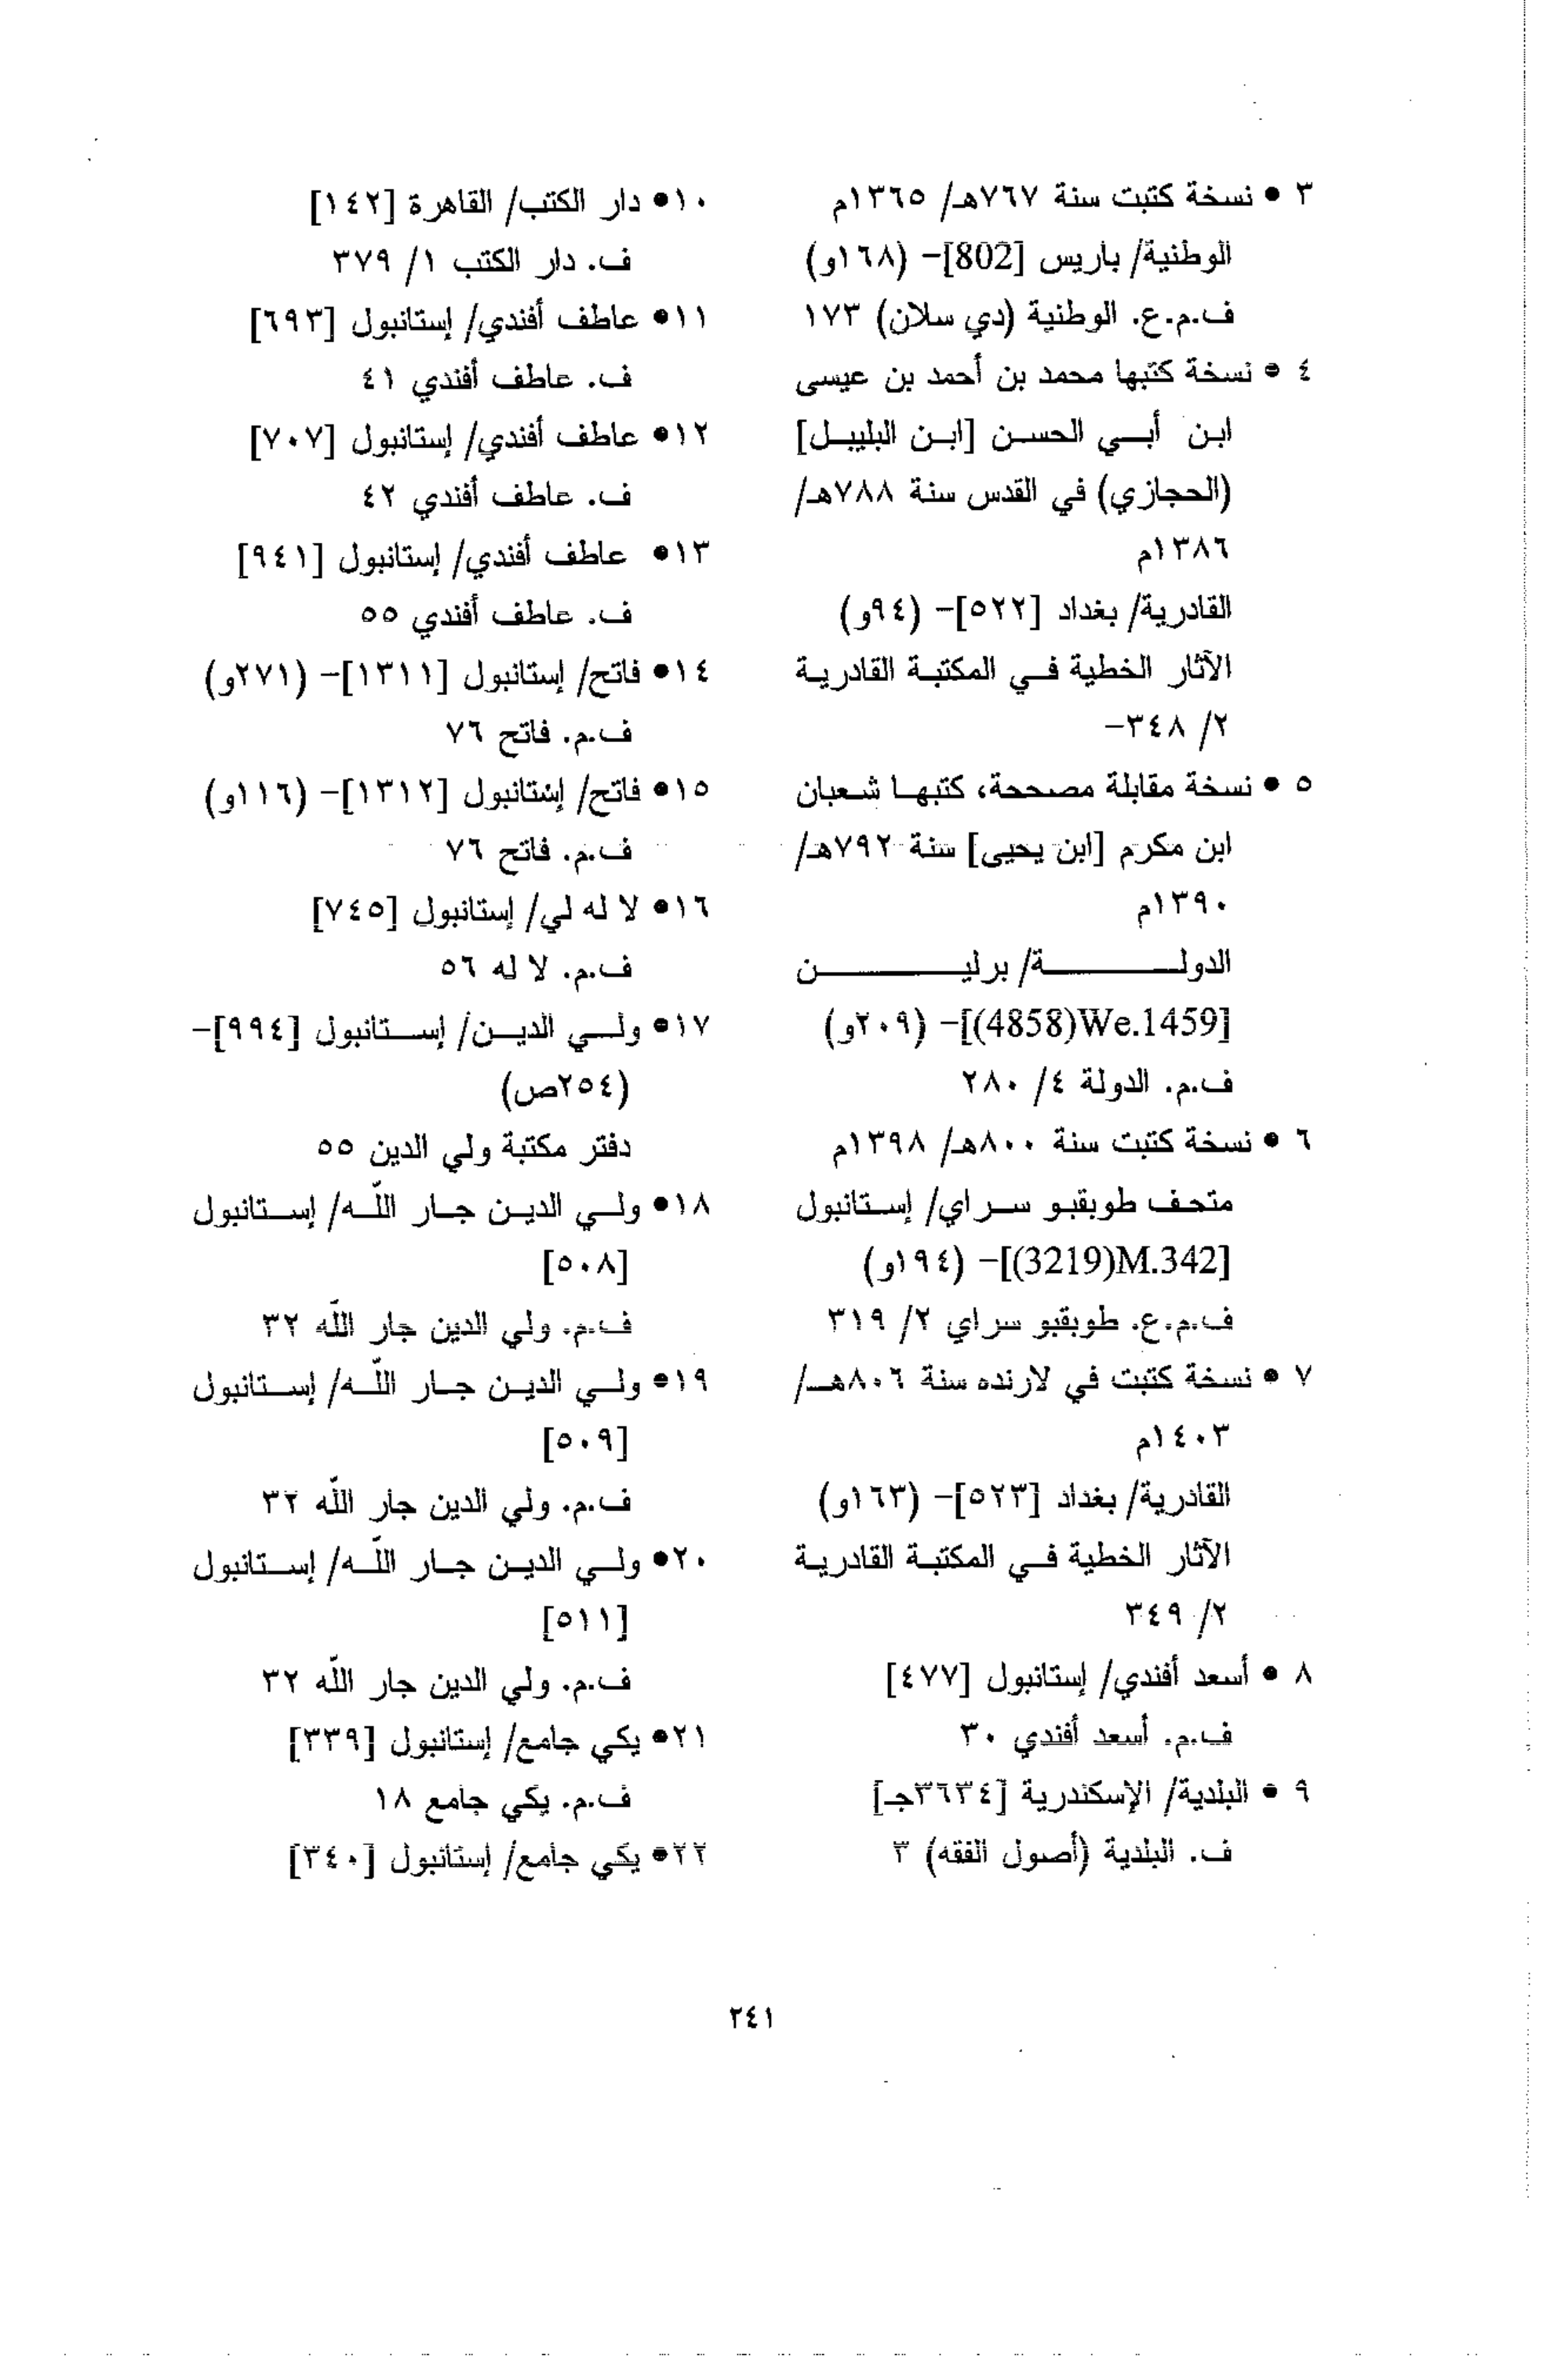 ٣ • نسخة كتبت سنة ٧٦٧هـ/ ١٣٦٥م
الوطنية/ باريس [802]- (١٦٨و)
ف.م.ع. الوطنية (دي سلان) ١٧٣
٤ • نسخة كتبها محمد بن أحمد بن عيسى
ابن أبي الحسن [ابن البليبل]
(الحجازي) في القدس سنة ٧٨٨هـ/
١٣٨٦م
القادرية/ بغداد [٥٢٢]- (٩٤و)
الآثار الخطية في المكتبة القادرية
٢/ ٣٤٨-
٥ • نسخة مقابلة مصححة، كتبها شعبان
ابن مكرم [ابن يحيى] سنة ٧٩٢هـ/
١٣٩٠م
الدولة/ برلين
[We.1459(4858)]- (٢٠٩و)
ف.م. الدولة ٤/ ٢٨٠
٦ • نسخة كتبت سنة ٨٠٠هـ/ ١٣٩٨م
متحف طوبقبو سراي/ إستانبول
[M.342(3219)]- (١٩٤و)
ف.م.ع. طوبقبو سراي ٢/ ٣١٩
٧ • نسخة كتبت في لارنده سنة ٨٠٦هـ/
١٤٠٣م
القادرية/ بغداد [٥٢٣]- (١٦٣و)
الآثار الخطية في المكتبة القادرية
٢/ ٣٤٩
٨ • أسعد أفندي/ إستانبول [٤٧٧]
ف.م. أسعد أفندي ٣٠
٩ • البلدية/ الإسكندرية [٣٦٣٤جـ]
ف. البلدية (أصول الفقه) ٣
١٠• دار الكتب/ القاهرة [١٤٢]
ف. دار الكتب ١/ ٣٧٩
١١• عاطف أفندي/ إستانبول [٦٩٣]
ف. عاطف أفندي ٤١
١٢• عاطف أفندي/ إستانبول [٧٠٧]
ف. عاطف أفندي ٤٢
١٣• عاطف أفندي/ إستانبول [٩٤١]
ف. عاطف أفندي ٥٥
١٤• فاتح/ إستانبول [١٣١١]- (٢٧١و)
ف.م. فاتح ٧٦
١٥• فاتح/ إستانبول [١٣١٢]- (١١٦و)
ف.م. فاتح ٧٦
١٦• لا له لي/ إستانبول [٧٤٥]
ف.م. لا له ٥٦
١٧• ولي الدين/ إستانبول [٩٩٤]-
(٢٥٤ص)
دفتر مكتبة ولي الدين ٥٥
١٨• ولي الدين جار اللّه/ إستانبول
[٥٠٨]
ف.م. ولي الدين جار اللّه ٣٢
١٩• ولي الدين جار اللّه/ إستانبول
[٥٠٩]
ف.م. ولي الدين جار اللّه ٣٢
٢٠• ولي الدين جار اللّه/ إستانبول
[٥١١]
ف.م. ولي الدين جار اللّه ٣٢
٢١• يكي جامع/ إستانبول [٣٣٩]
ف.م. يكي جامع ١٨
٢٢• يكي جامع/ إستانبول [٣٤٠]
٢٤١